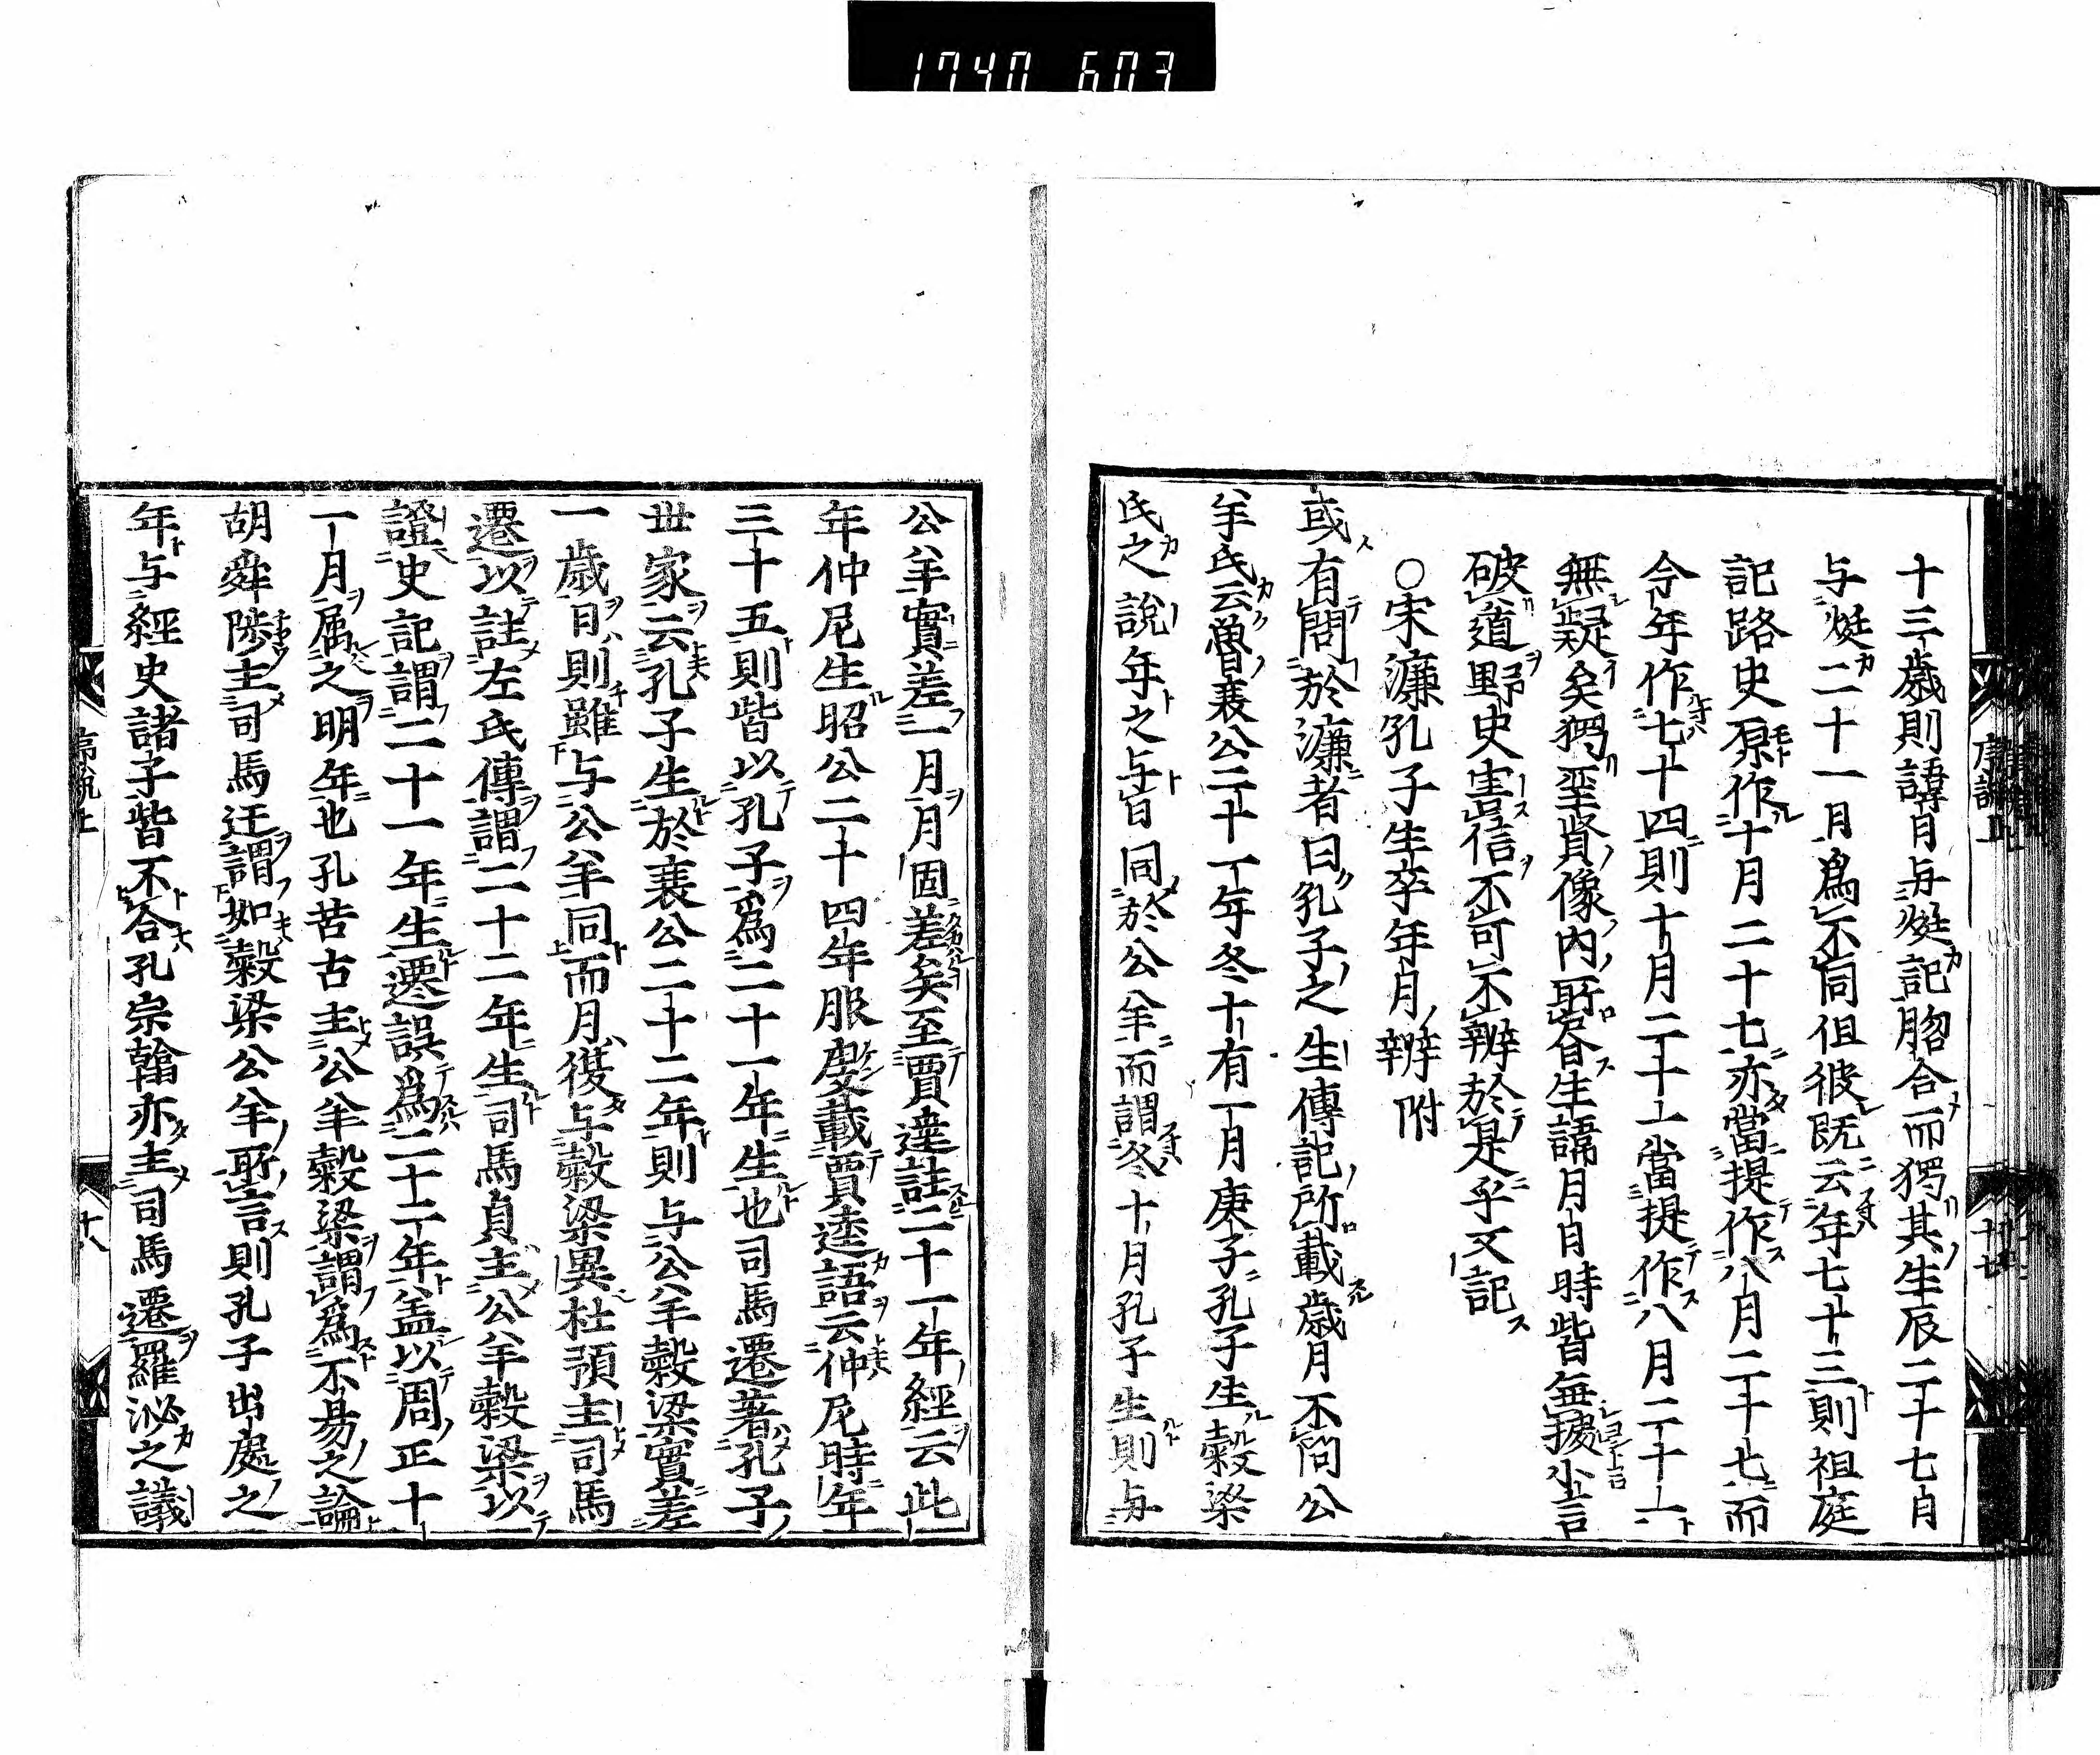 1740 603
十三歲則諱月与娗記脗合而獨其生辰二十七月
与娗二十一月爲不同但彼既云年七十三則祖庭
記路史原作十月二十七亦當提作八月二十七而
今年作七十四則十月二十一當提作八月二十一
無疑矣獨聖賢像内所昏生諱月日時皆無據尘言
破道野史害信不可不辨於是乎文記
〇宋濂孔子生卒年月辨附
或有問於濂者曰孔子之生傳記所載歲月不同公
羊氏云魯襄公二十一年冬十有一月庚子孔子生穀梁
氏之說年之与旨同於公羊而謂冬十月孔子生則与
公羊實差一月月固差矣至賈逵註二十一年經云此
年仲尼生昭公二十四年服虔載賈逵語云仲尼時年
三十五則皆以孔子爲二十一年生也司馬遷著孔子
世家云孔子生於襄公二十二年則与公羊穀梁實差
一歲日則雖与公羊同而月復与穀梁異杜預主司馬
遷以註左氏傳謂二十二年生司馬貞主公羊穀梁以
證史記謂二十一年生遷誤爲二十二年盖以周正十
一月属之明年也孔若古主公羊穀梁謂爲不易之論
胡舜陟主司馬迁謂如穀梁公羊所言則孔子出處之
年与經史諸子皆不合孔宗翰亦主司馬遷羅泌之議
序說上
十七
序說上
十八